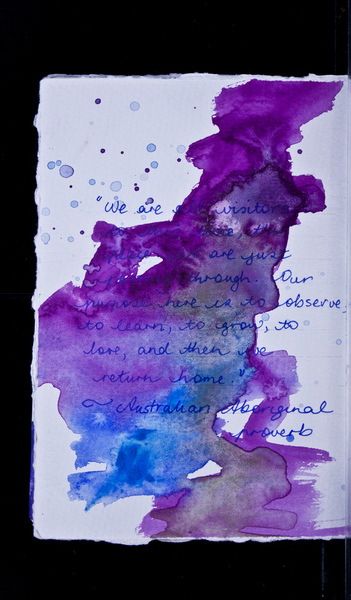 "We are all visitors
to this time, this
place. We are just
passing through. Our
purpose here is to observe,
to learn, to grow, to
love, and then we
return home."
~ Australian Aboriginal
proverb